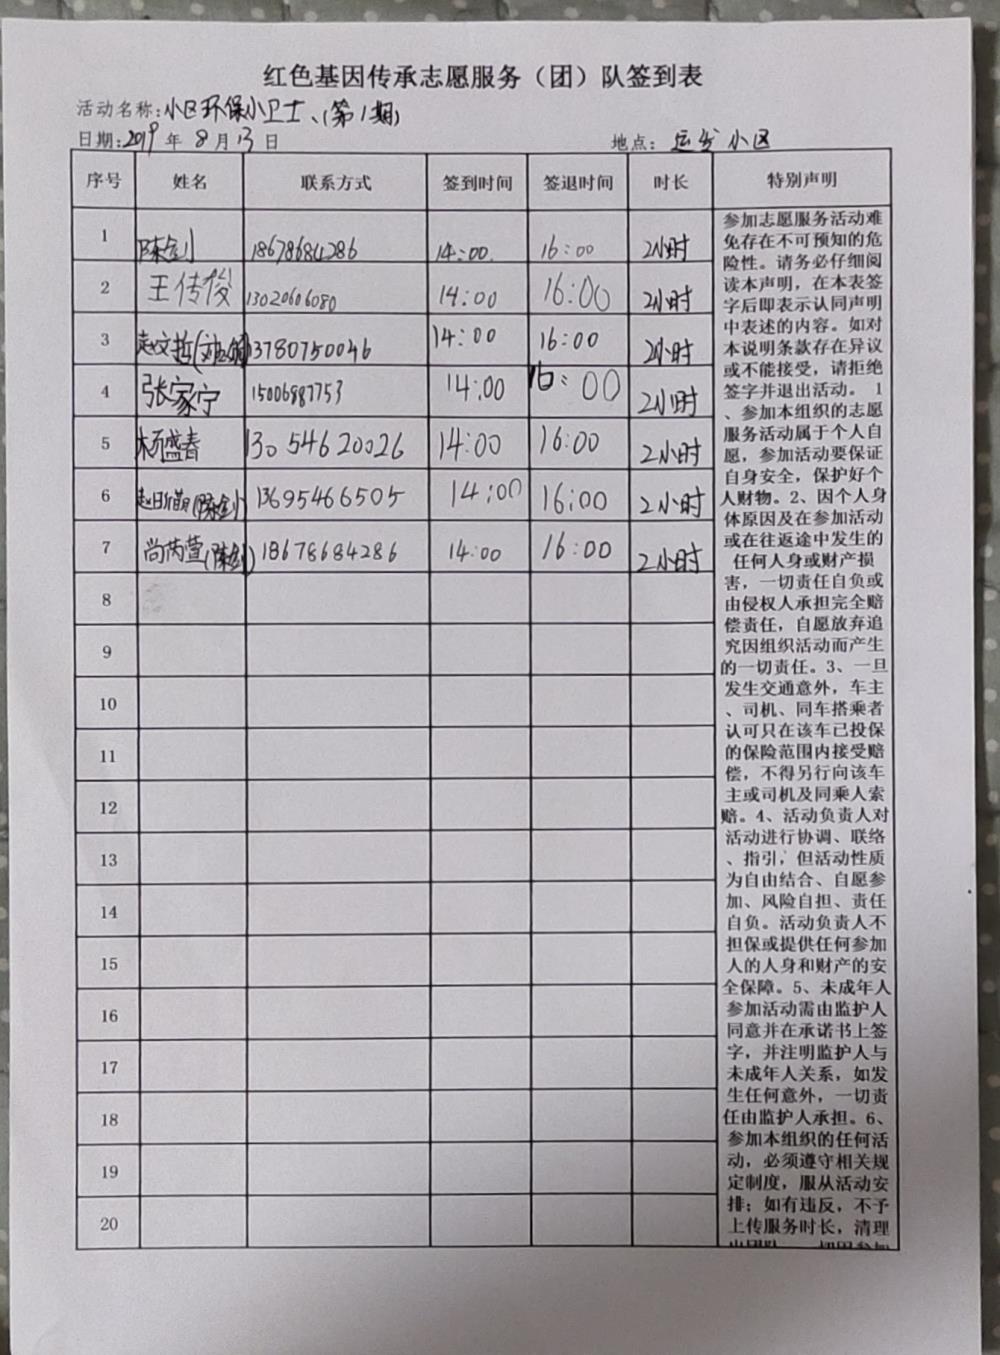 红色基因传承志愿服务（团）队签到表
活动名称:小区环保小卫士、(第1期)
日期:2019年8月13日 地点：运发小区
序号 姓名 联系方式 签到时间 签退时间 时长 特别声明
1 陈剑 18678684286 14:00 16:00 2小时
2 王传俊 13020606080 14:00 16:00 2小时
3 赵文哲 13780750046 14:00 16:00 2小时
4 张家宁 15006887753 14:00 16:00 2小时
5 杨盛春 13054620026 14:00 16:00 2小时
6 (陈剑) 13695466505 14:00 16:00 2小时
7 尚芮萱(陈剑) 18678684286 14:00 16:00 2小时
8
9
10
11
12
13
14
15
16
17
18
19
20
参加志愿服务活动难
免存在不可预知的危
险性。请务必仔细阅
读本声明，在本表签
字后即表示认同声明
中表述的内容。如对
本说明条款存在异议
或不能接受，请拒绝
签字并退出活动。 1
、参加本组织的志愿
服务活动属于个人自
愿，参加活动要保证
自身安全，保护好个
人财物。2、因个人身
体原因及在参加活动
或在往返途中发生的
任何人身或财产损
害，一切责任自负或
由侵权人承担完全赔
偿责任，自愿放弃追
究因组织活动而产生
的一切责任。3、一旦
发生交通意外，车主
、司机、同车搭乘者
认可只在该车已投保
的保险范围内接受赔
偿，不得另行向该车
主或司机及同乘人索
赔。4、活动负责人对
活动进行协调、联络
、指引，但活动性质
为自由结合、自愿参
加、风险自担、责任
自负。活动负责人不
担保或提供任何参加
人的人身和财产的安
全保障。5、未成年人
参加活动需由监护人
同意并在承诺书上签
字，并注明监护人与
未成年人关系，如发
生任何意外，一切责
任由监护人承担。6、
参加本组织的任何活
动，必须遵守相关规
定制度，服从活动安
排；如有违反，不予
上传服务时长，清理